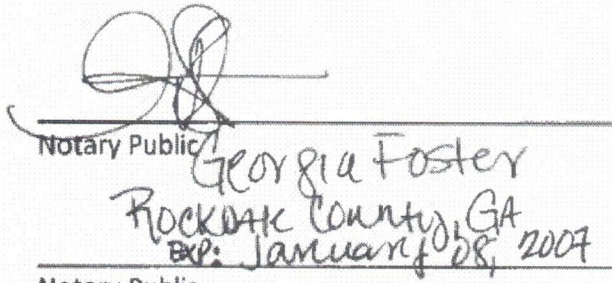 Notary Public
Georgia Foster
Rockdale County, GA
Exp: January 08, 2007
Notary Public